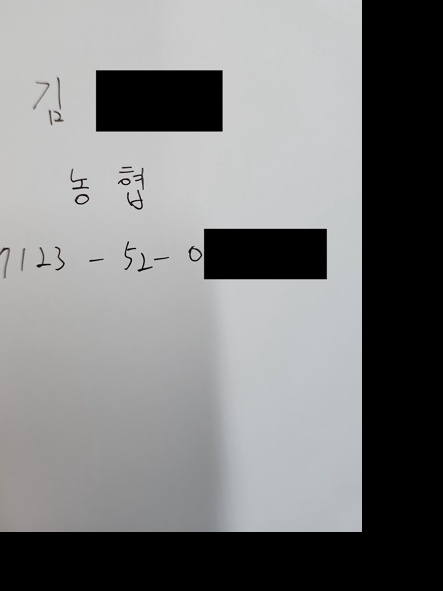 김
농협
7123 - 52- 0